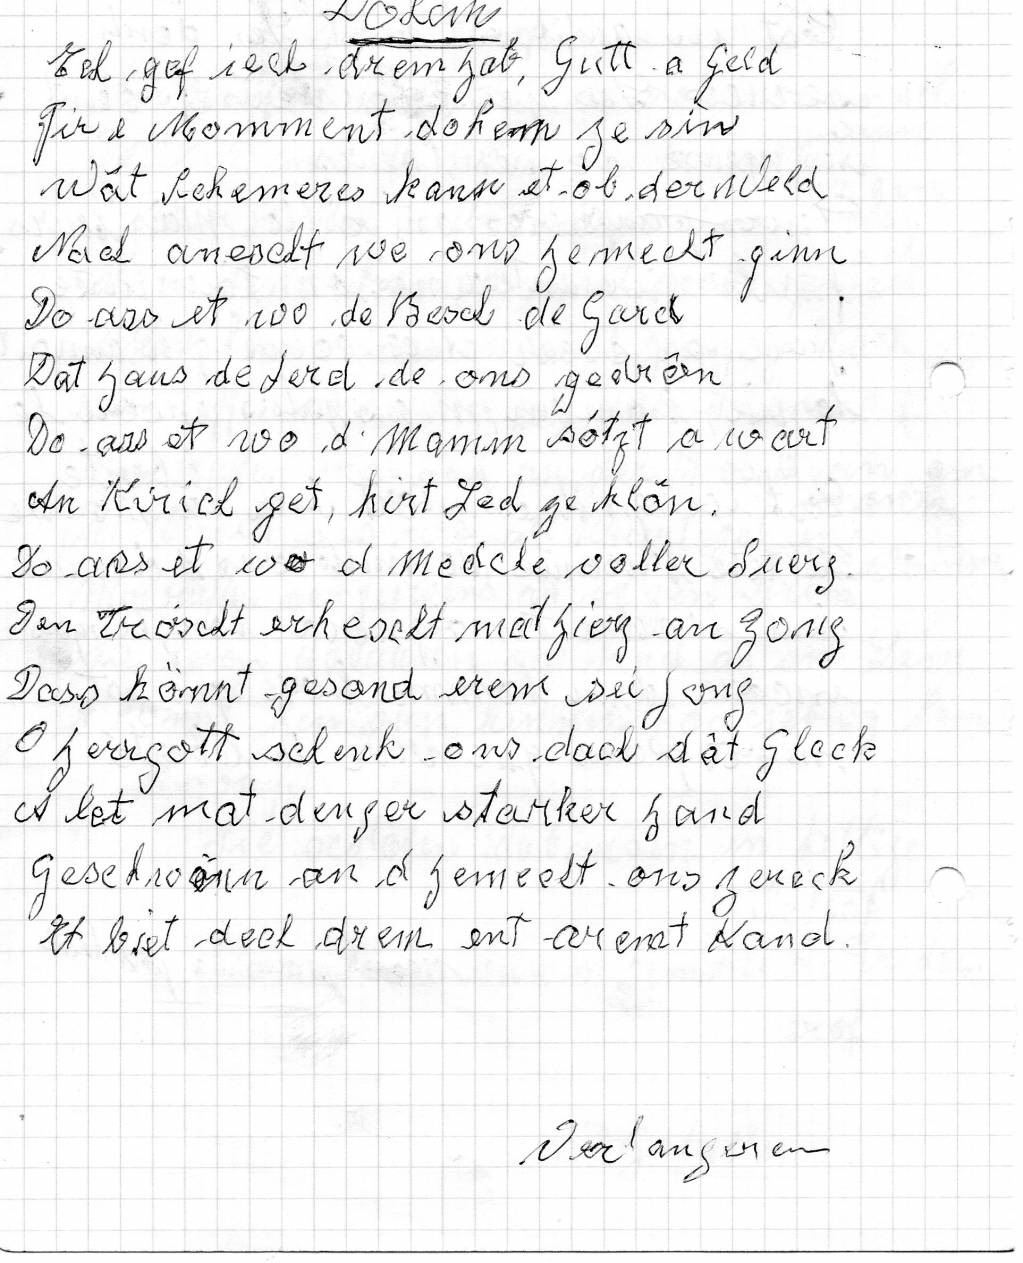 Dohem
Ech gef iech drem Hab, Gutt a Geld
Fir e Momment dohem ze sin
Wât schemeres kann et ob der Weld
Nach anescht we ons Hemecht ginn
Do ass et wo de Besch de Gard
Dât Haus de Ierd de ons gedrôn
Do ass et wo d' Mamm sótzt a wart
An Kirich get, hirt Led ze klôn.
Do ass et wo d Medche voller Suerg.
Den Tróscht erhescht mat Hierz an Zong
Dass kömnt gesond erem séi Jong
O Herrgott schenk ons dach dât Gleck
A let mat denger starker Hand
Geschwönn an d Hemecht ons zereck
Et biet dech drem ent aremt Kand.
Verlangeren